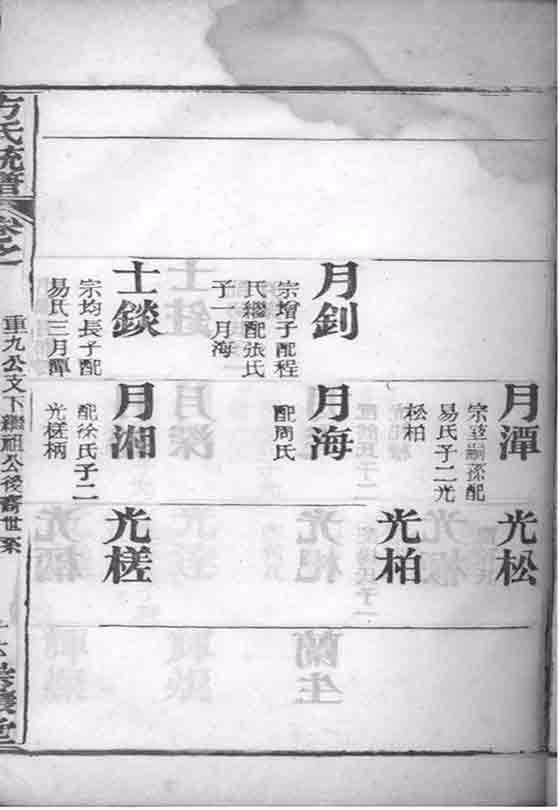 月潭
宗荁嗣孫配
易氏子二光
松柏
光松
光柏
月釗
宗增子配程
氏繼配張氏
子一月海
月海
配周氏
士錟
宗均長子配
易氏三月潭
月湘
配徐氏子二
光槎柄
光槎
方氏統譜
卷之
重九公文下繼祖公後裔世系